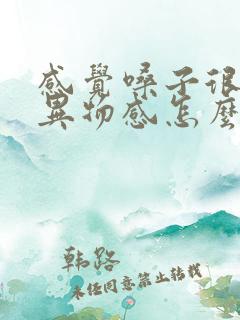 感覺嗓子很
異物感怎麼
韩路
未经同意禁止转载